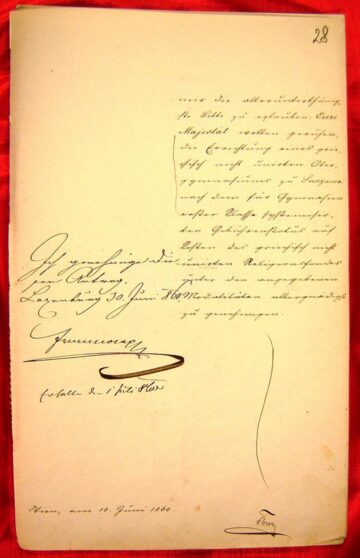 28
mir die allerunterthänig-
ste Bitte zu erlauben, Eure
Majestät wollen geruhen,
die Errichtung eines grie-
chisch nicht unirten Ober-
gymnasiums zu Suczawa
nach dem für Gymnasien
erster Klasse systemisir-
ten Gebührenstatus auf
Kosten des griechisch nicht
unirten Religionsfondes
unter den angegebenen
Modalitäten allergnädigst
zu genehmigen.
Ich genehmige die-
sen Antrag.
Laxenburg 30. Juni 860
Erhalten den 1 Juli
Wien, am 10. Juni 1860.
Thun